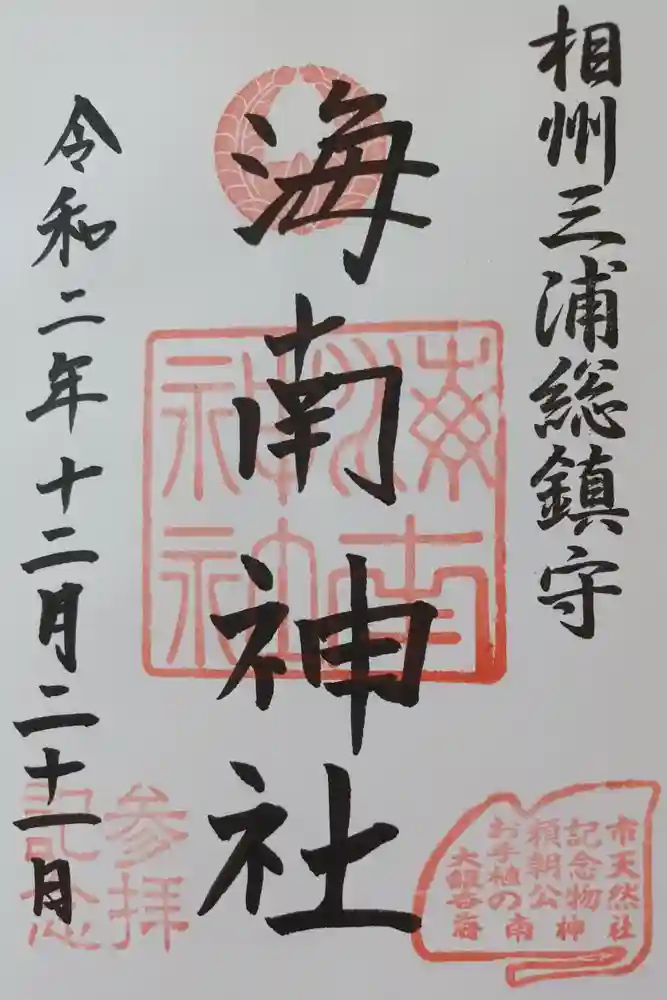 相州三浦総鎮守
海南神社
令和二年十二月二十一日
海南
神社
参拝
記念
市天然
記念物
頼朝公
お手植の
大銀杏
海南神社